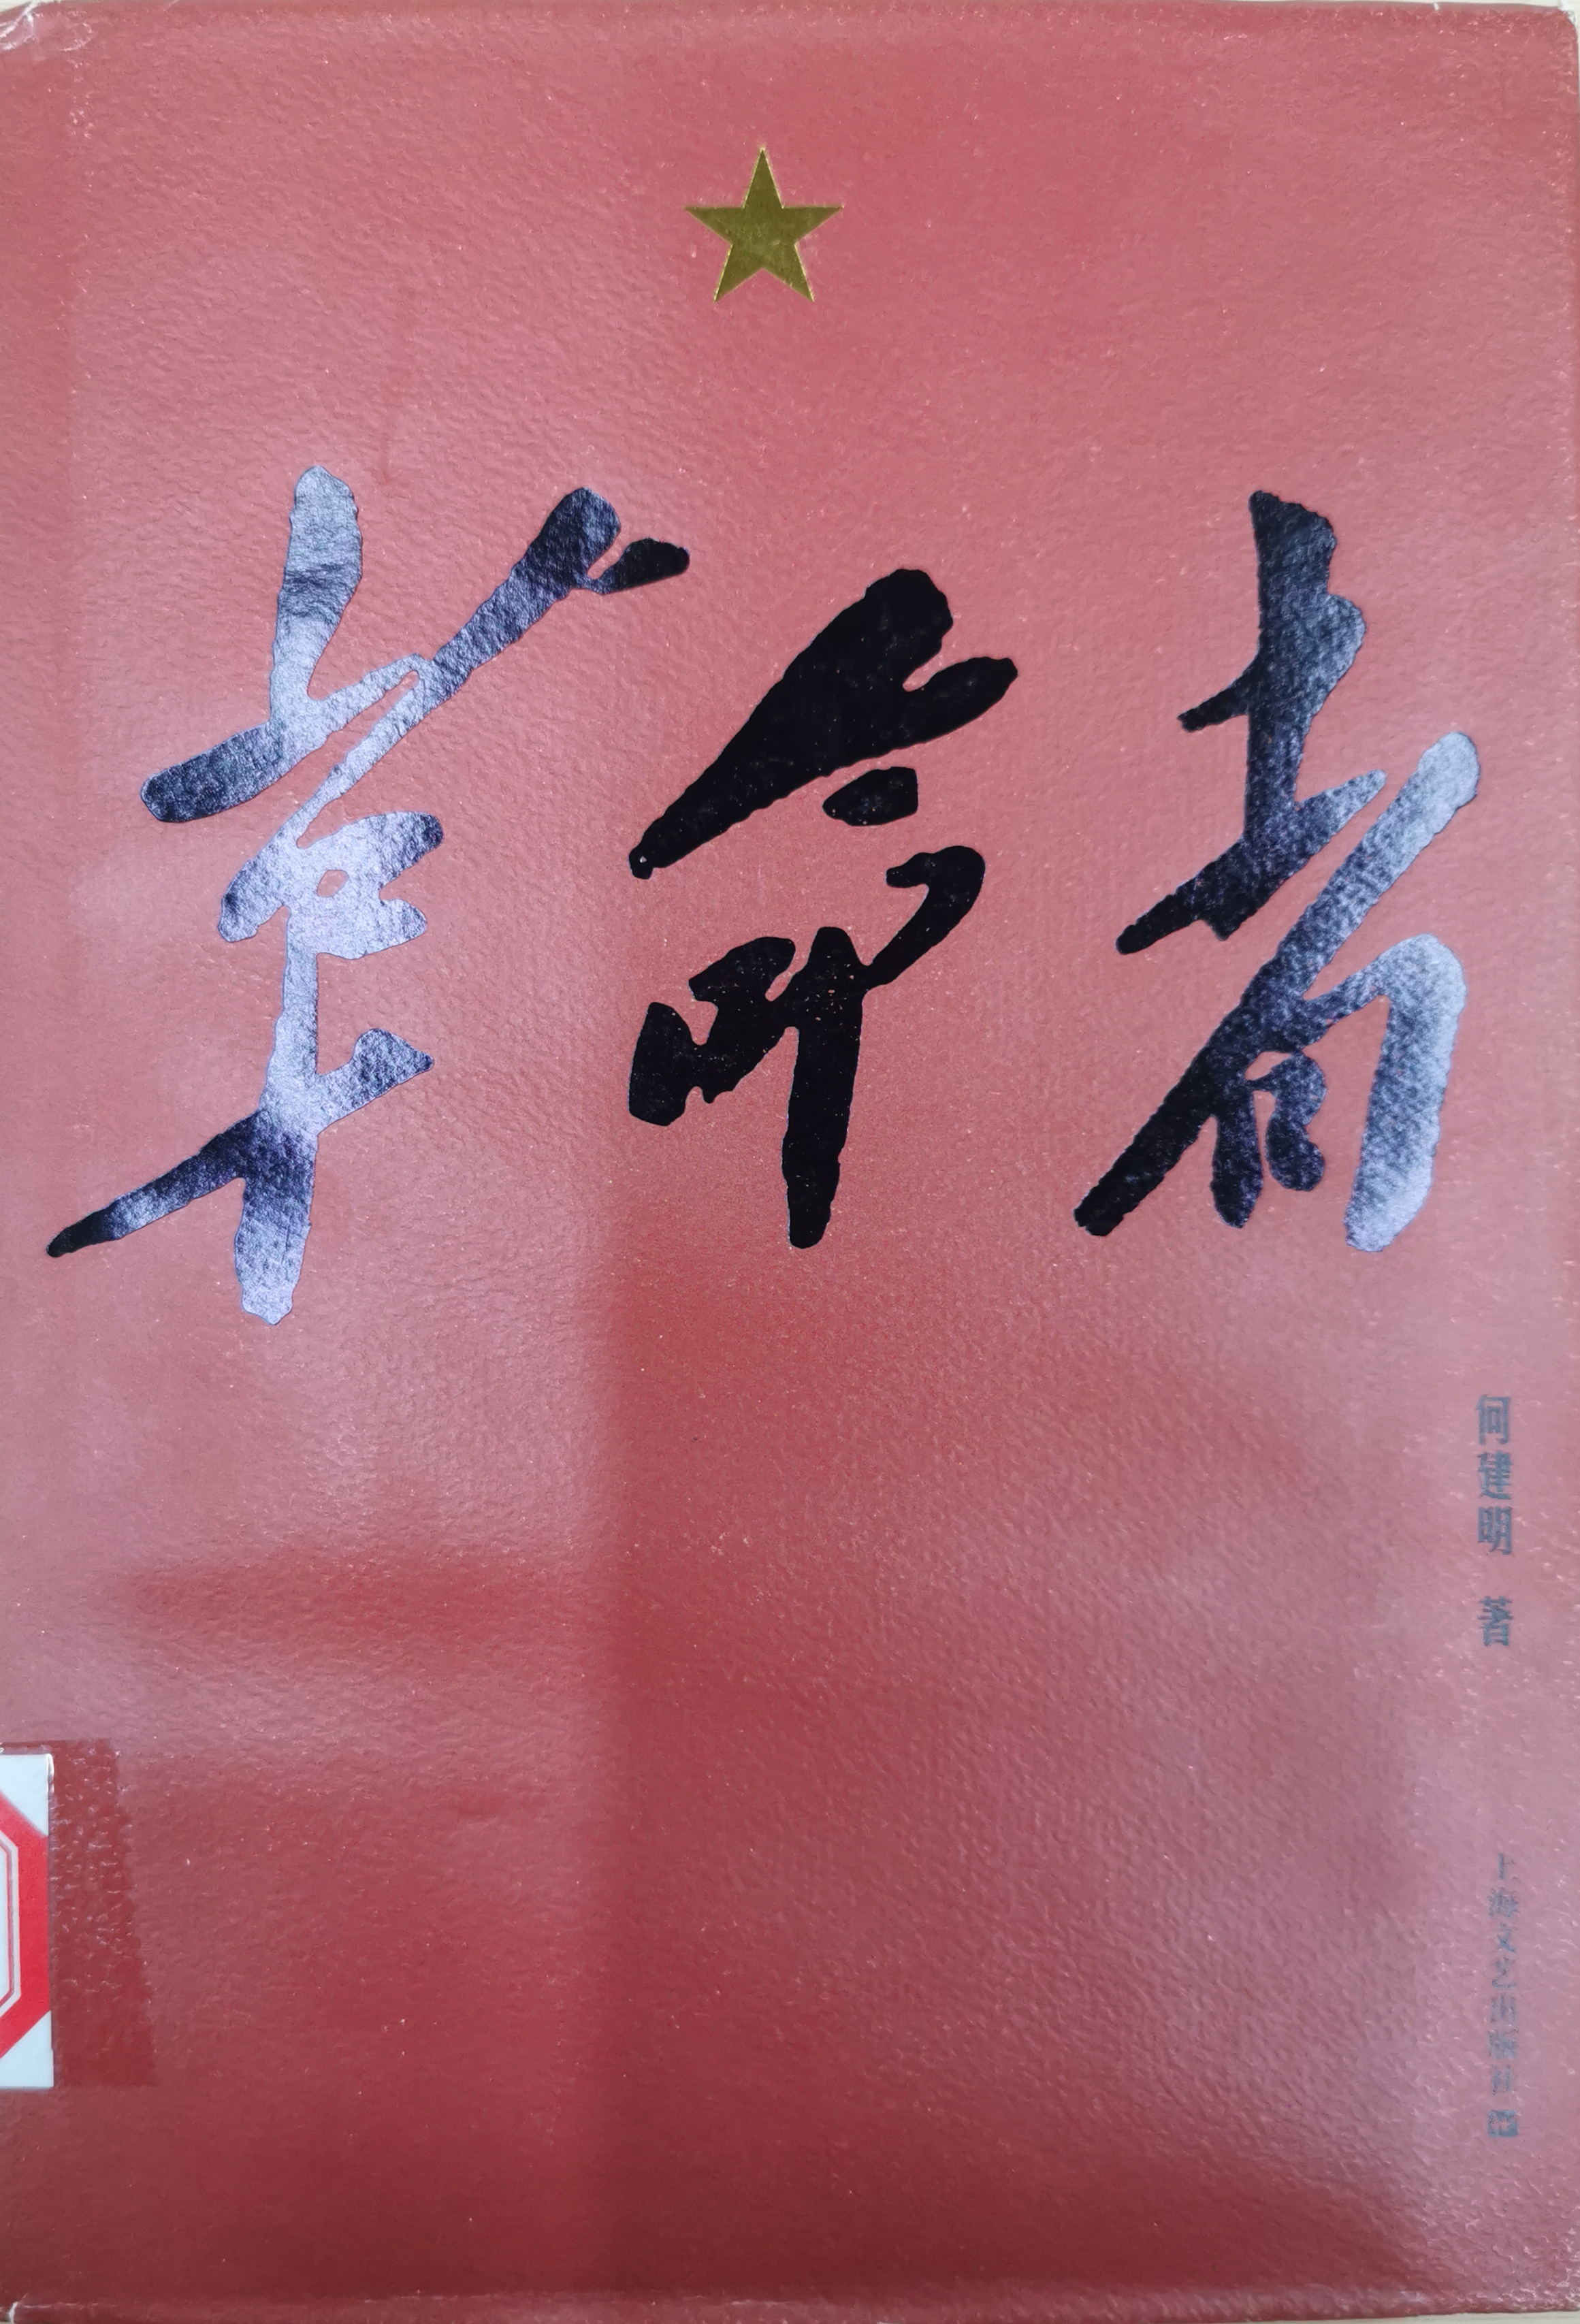 革命者
何建明 著
上海文艺出版社